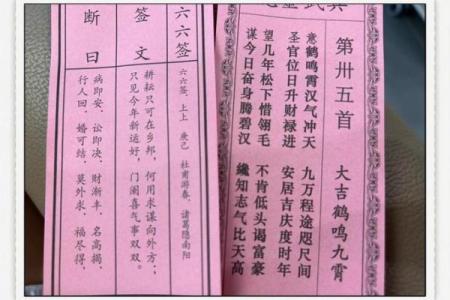 第卅五首 大吉鹤鸣九霄
意鹤鸣霄汉气冲天 九万程途咫尺间
圣官位日升财禄进 安居吉庆度时年
望几年松下惜翎毛 不肯低头谒富豪
谋今日奋身腾碧汉 纔知志气比天高
六六签
六六签、上上 庚己 杜甫游春、诸葛隐南阳
签文
耕耘只可在乡邦，何用求谋向外方；
只见今年新运好，门阑喜气事双双。
断曰
病即安、讼即决、财渐丰、名高揭、
行人回、婚可结、莫外求、福尽得、